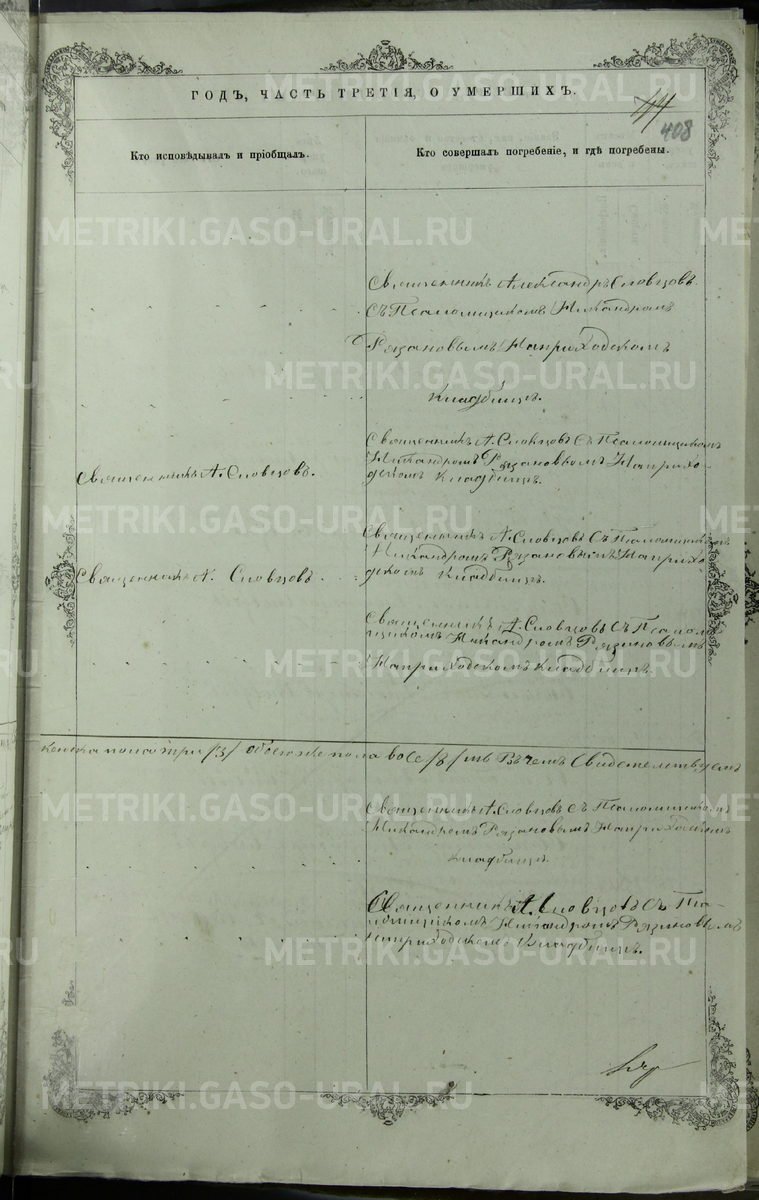 ГОДЪ, ЧАСТЬ ТРЕТІЯ, О УМЕРШИХЪ.
44
408
Кто исповѣдывалъ и пріобщалъ.
Кто совершалъ погребеніе, и гдѣ погребены.
Священникъ Александръ Словцовъ
съ Псаломщикомъ Никандромъ
Рязановымъ На приходскомъ
кладбищѣ.
Священникъ А. Словцовъ съ Псаломщикомъ
Никандромъ Рязановымъ На прихо-
дскомъ кладбищѣ.
Священникъ А. Словцовъ.
Священникъ А. Словцовъ съ Псаломщикомъ
Никандромъ Рязановымъ На прихо-
дскомъ кладбищѣ.
Священникъ А. Словцовъ.
Священникъ А. Словцовъ съ Псалом-
щикомъ Никандромъ Рязановымъ
На приходскомъ кладбищѣ.
женска пола три /3/ обоего же пола восемь /8/ Въ чемъ Свидетельствуемъ
Священникъ А. Словцовъ съ Псаломщикомъ
Никандромъ Рязановымъ На приходскомъ
кладбищѣ.
Священникъ А. Словцовъ съ Пса-
ломщикомъ Никандромъ Рязановымъ
На приходскомъ кладбищѣ.
METRIKI.GASO-URAL.RU